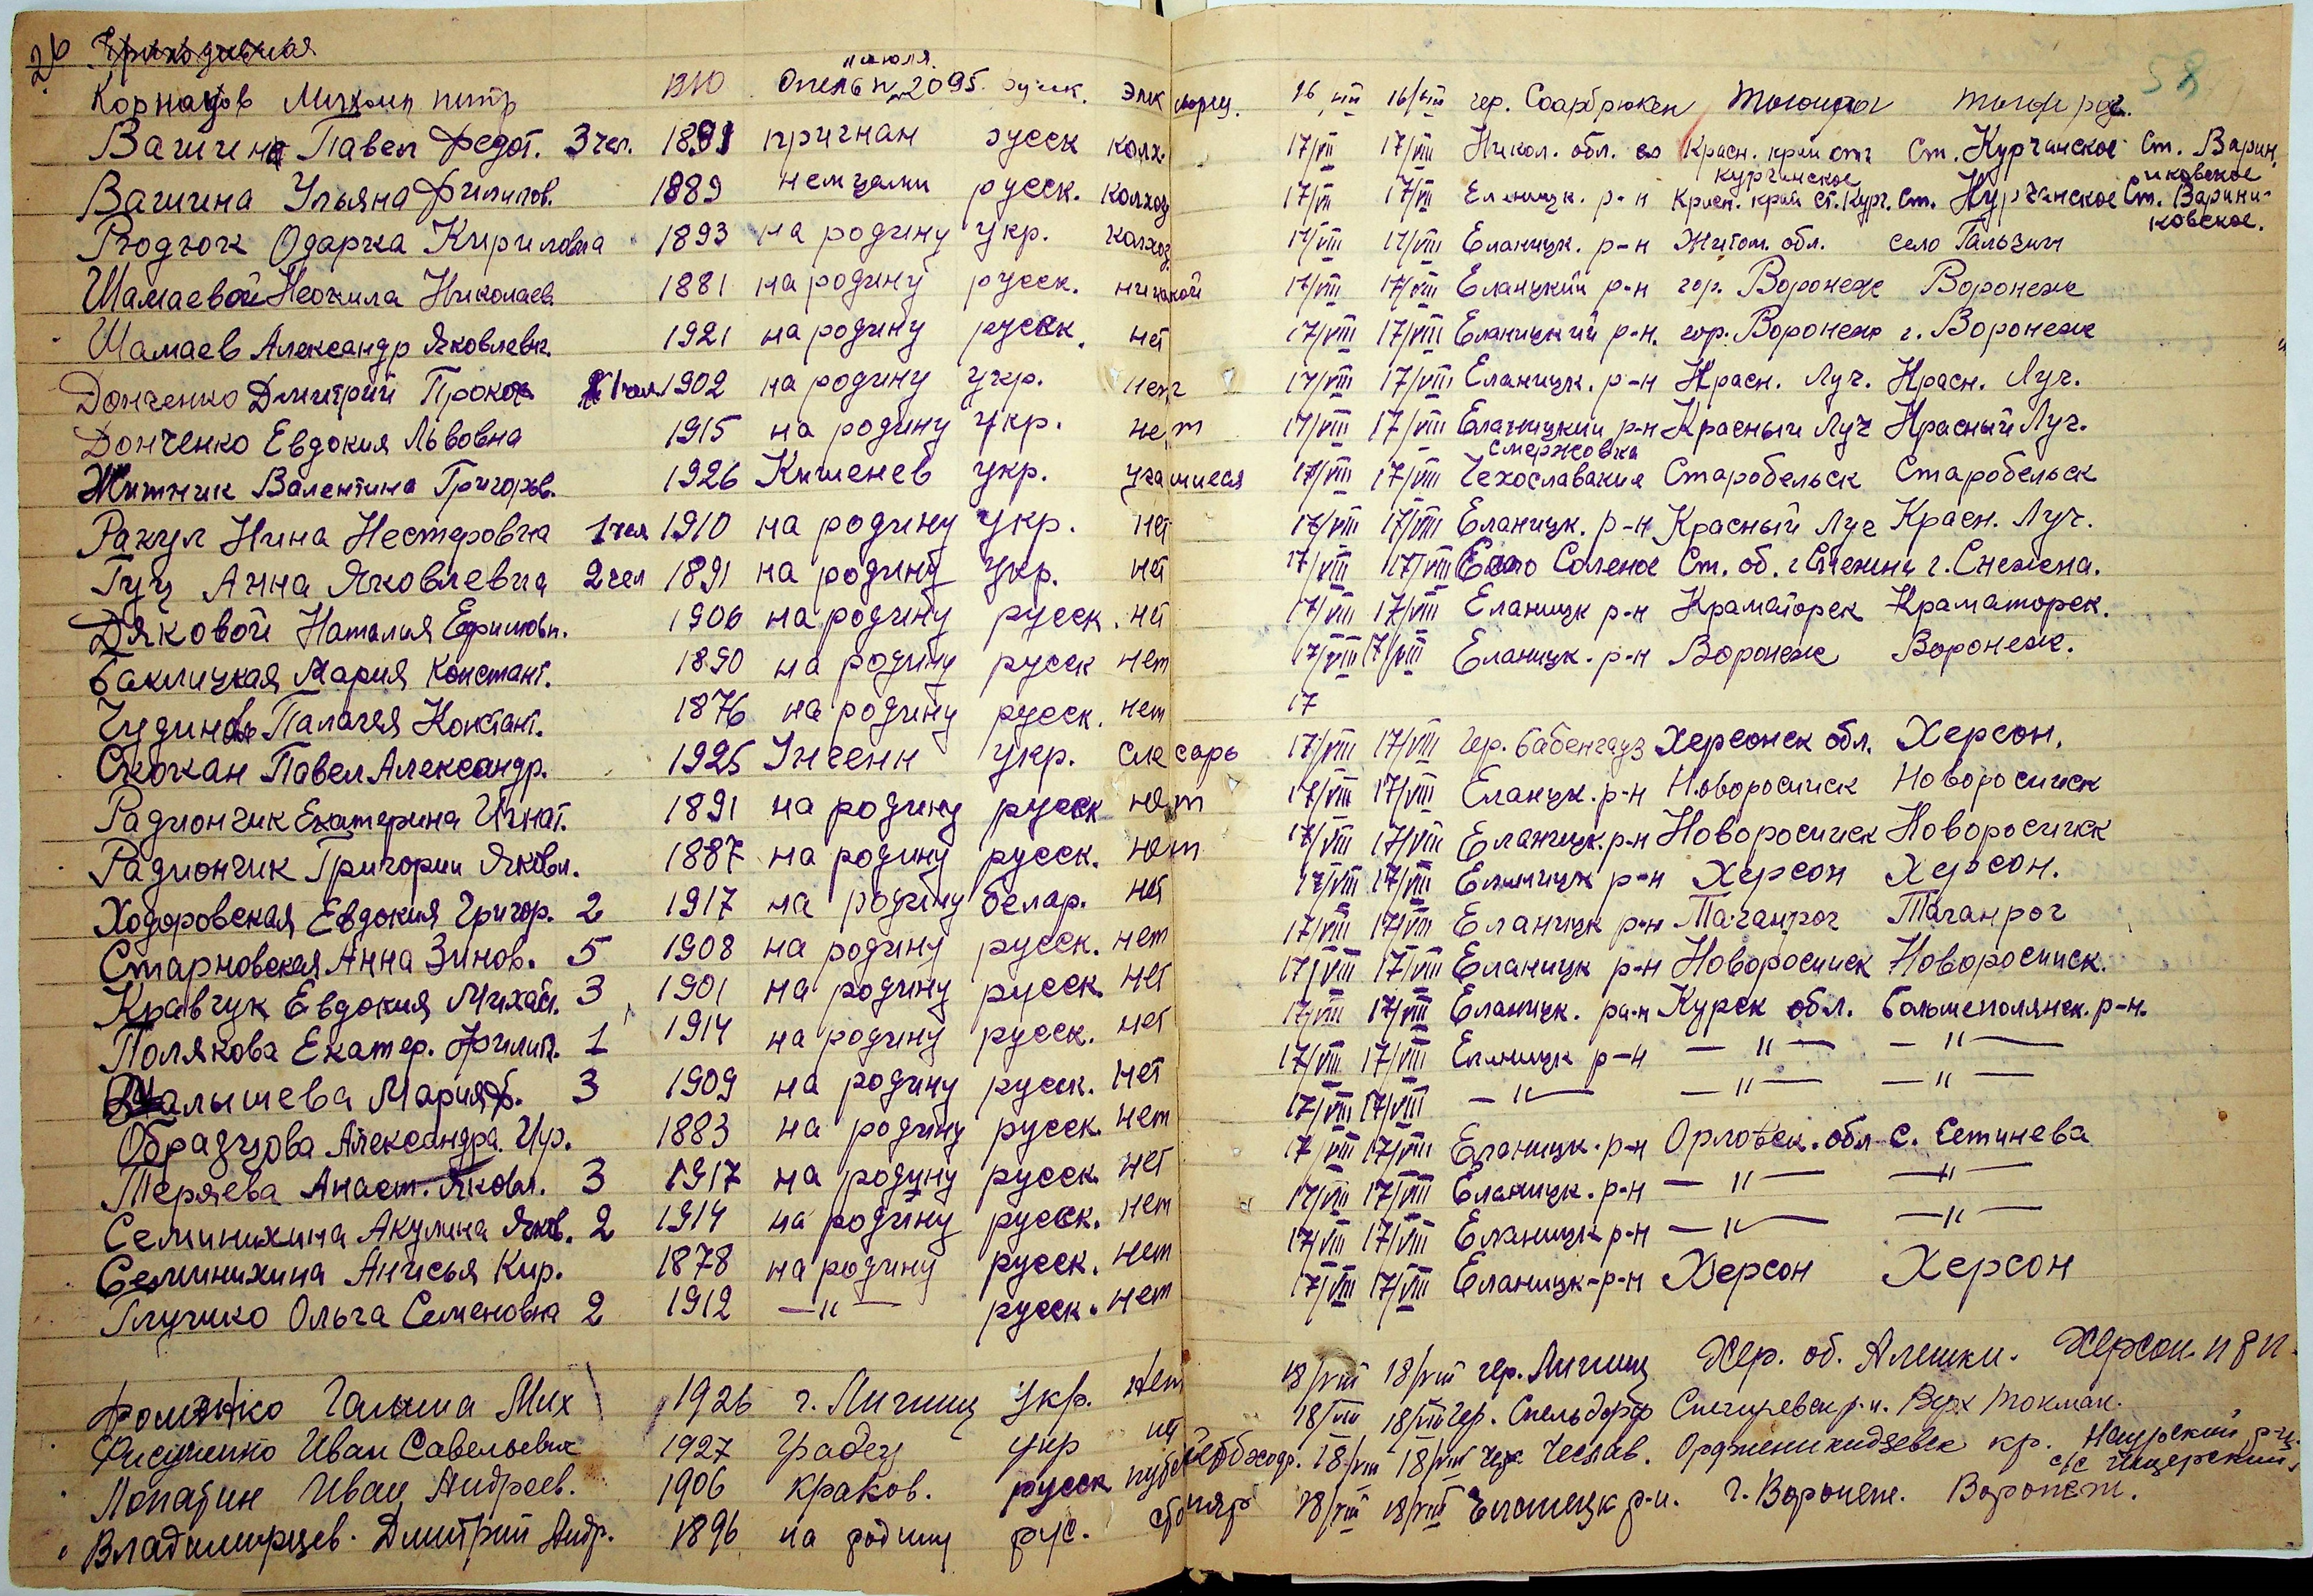 26
58
июля.
Корнауов Михаил питр 1910 Опель n 2095. русск. элик 16/VII 16/VIII гер. Саарбрюкен
Вагина Павел Федот. 3 чел. 1891 пригнан русск колх. 17/VII 17/VIII Никол. обл. Красн. край ст. Курчанское Ст. Варин,
Курчинское иковское
Вагина Ульяна Филипов. 1889 немцами русск. колхоз 17/VII 17/VII Еланицк. р-н Красн. край ст. Курч. Ст. Курчанское Ст. Варини-
ковское.
Родюк Одарка Кириловна 1893 на родину укр. колхоз. 17/VIII 17/VIII Еланицк. р-н Житом. обл. село Гальчин
Шамаевой Неонила Николаев. 1881 на родину русск. никакой 17/VIII 17/VIII Еланицкий р-н гор. Воронеж Воронеж
Шамаев Александр Яковлевич. 1921 на родину русск. нет 17/VIII 17/VIII Еланицкий р-н. гор. Воронеж г. Воронеж
Донченко Дмитрий Прокоп 1 чел 1902 на родину укр. нет 17/VIII 17/VIII Еланицк. р-н Красн. Луч. Красн. Луч.
Донченко Евдокия Львовна 1915 на родину укр. нет 17/VIII 17/VIII Еланицкий р-н Красный Луч Красный Луч.
Смержовка
Житник Валентина Григорьв. 1926 Кишенев укр. учашиеся 17/VIII 17/VIII Чехославакия Старобельск Старобельск
Ракул Нина Нестеровна 1 чел 1910 на родину укр. нет 17/VIII 17/VIII Еланицк. р-н Красный Луч Красн. Луч.
Гуц Анна Яковлевна 2 чел 1891 на родину укр. нет 17/VIII 17/VIII Соленое Ст. об. г. Снежена.
Дяковой Наталия Ефимовн. 1906 на родину русск. нет 17/VIII 17/VIII Еланицк р-н Краматорск Краматорск.
Баклицкая Мария Констант. 1890 на родину русск нет 17/VIII 17/VIII Еланицк. р-н Воронеж Воронеж.
Чудинов Палагея Констант. 1876 на родину русск. нет 17
Скокан Павел Александр. 1925 Унгени укр. слесарь 17/VIII 17/VIII гер. Бабенгауз Херсонск обл. Херсон.
Радиончик Екатерина Игнат. 1891 на родину русск нет 17/VIII 17/VIII Еланцк. р-н Новоросийск Новоросийск
Радиончик Григории Яковл. 1887 на родину русск. нет 17/VIII 17/VIII Еланицк. р-н Новоросийск Новоросийск
Ходоровская Евдокия Григор. 2 1917 на родину белар. нет 17/VIII 17/VIII Еланицк р-н Херсон Херсон.
Старновская Анна Зинов. 5 1908 на родину русск. нет 17/VIII 17/VIII Еланицк р-н Таганрог Таганрог
Кравчук Евдокия Михайл. 3 1901 на родину русск нет 17/VIII 17/VIII Еланицк р-н Новоросийск Новоросийск.
Полякова Екатер. Филип. 1 1914 на родину русск. нет 17/VIII 17/VIII Еланицк. ра-н Курск обл. Большеполянск. р-н.
Малышева Мария Ф. 3 1909 на родину русск. нет 17/VIII 17/VIII Еланицк р-н — " — — " —
Образцова Александра Ир. 1883 на родину русск. нет 17/VIII 17/VIII — " — — " — — " —
Теряева Анаст. Яковл. 3 1917 на родину русск. нет 17/VIII 17/VIII Еланицк. р-н Орловск. обл с. Сетинева
Семинихина Акулина Яков. 2 1914 на родину русск. нет 17/VIII 17/VIII Еланицк. р-н — " — — " —
Семинихина Анисья Кир. 1878 на родину русск. нет 17/VIII 17/VIII Еланицк р-н — " — — " —
Глушко Ольга Семеновна 2 1912 — " — русск. нет 17/VIII 17/VIII Еланицк-р-н Херсон Херсон
Фоменко Галина Мих 1926 г. Лигниц укр. нет 18/VIII 18/VIII гер. Лигниц Хер. об. Алешки. Херсон
Фисуненко Иван Савельевич 1927 Градец укр 18/VIII 18/VIII Гер. Снигиревск р-н. Верх Токмак.
Лопатин Иван Андреев. 1906 Краков. русск 18/VIII 18/VIII Чеслав. Орджоникидзевск кр. Наурский
с/с Ищерский
Владимирцев. Дмитрий Андр. 1896 на родину рус. столяр 18/VIII 18/VIII Еланецк р-н. г. Воронеж. Воронеж.